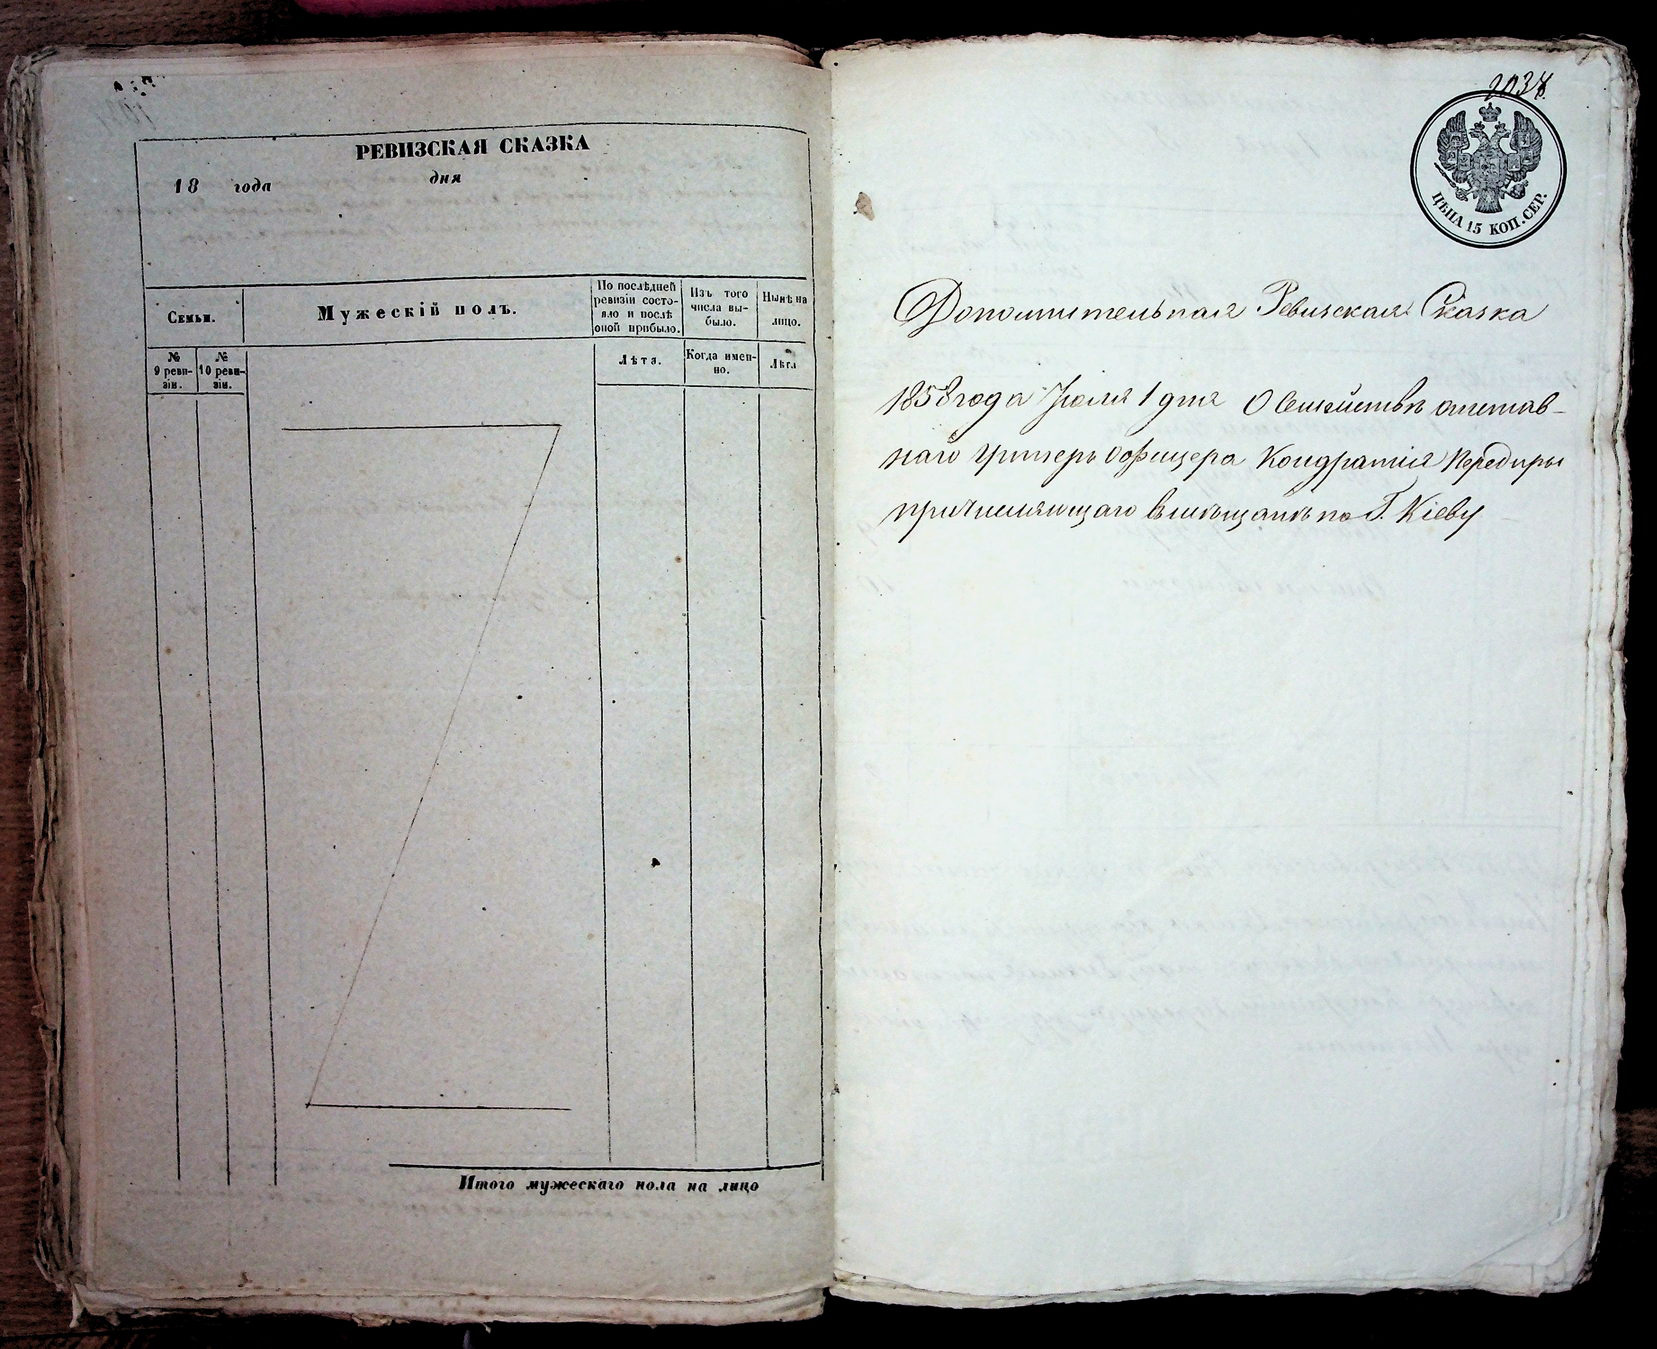 РЕВИЗСКАЯ СКАЗКА
18 года дня
Семьи.
Мужескій полъ.
По послѣдней ревизіи состо-
яло и послѣ
оной прибыло.
Изъ того
числа вы-
было.
Нынѣ на
лицо.
№
9 реви-
зіи.
№
10 реви-
зіи.
Лѣта.
Когда имен-
но.
Лѣта
Итого мужескаго пола на лицо
ЦѢНА 15 КОП. СЕР.
Дополнительная Ревизская Сказка
1858 года Июля 1 дня О Семействѣ отстав-
наго Унтеръ Офицера Кондратія
причисляющаго въ мѣщане по Г. Кіеву